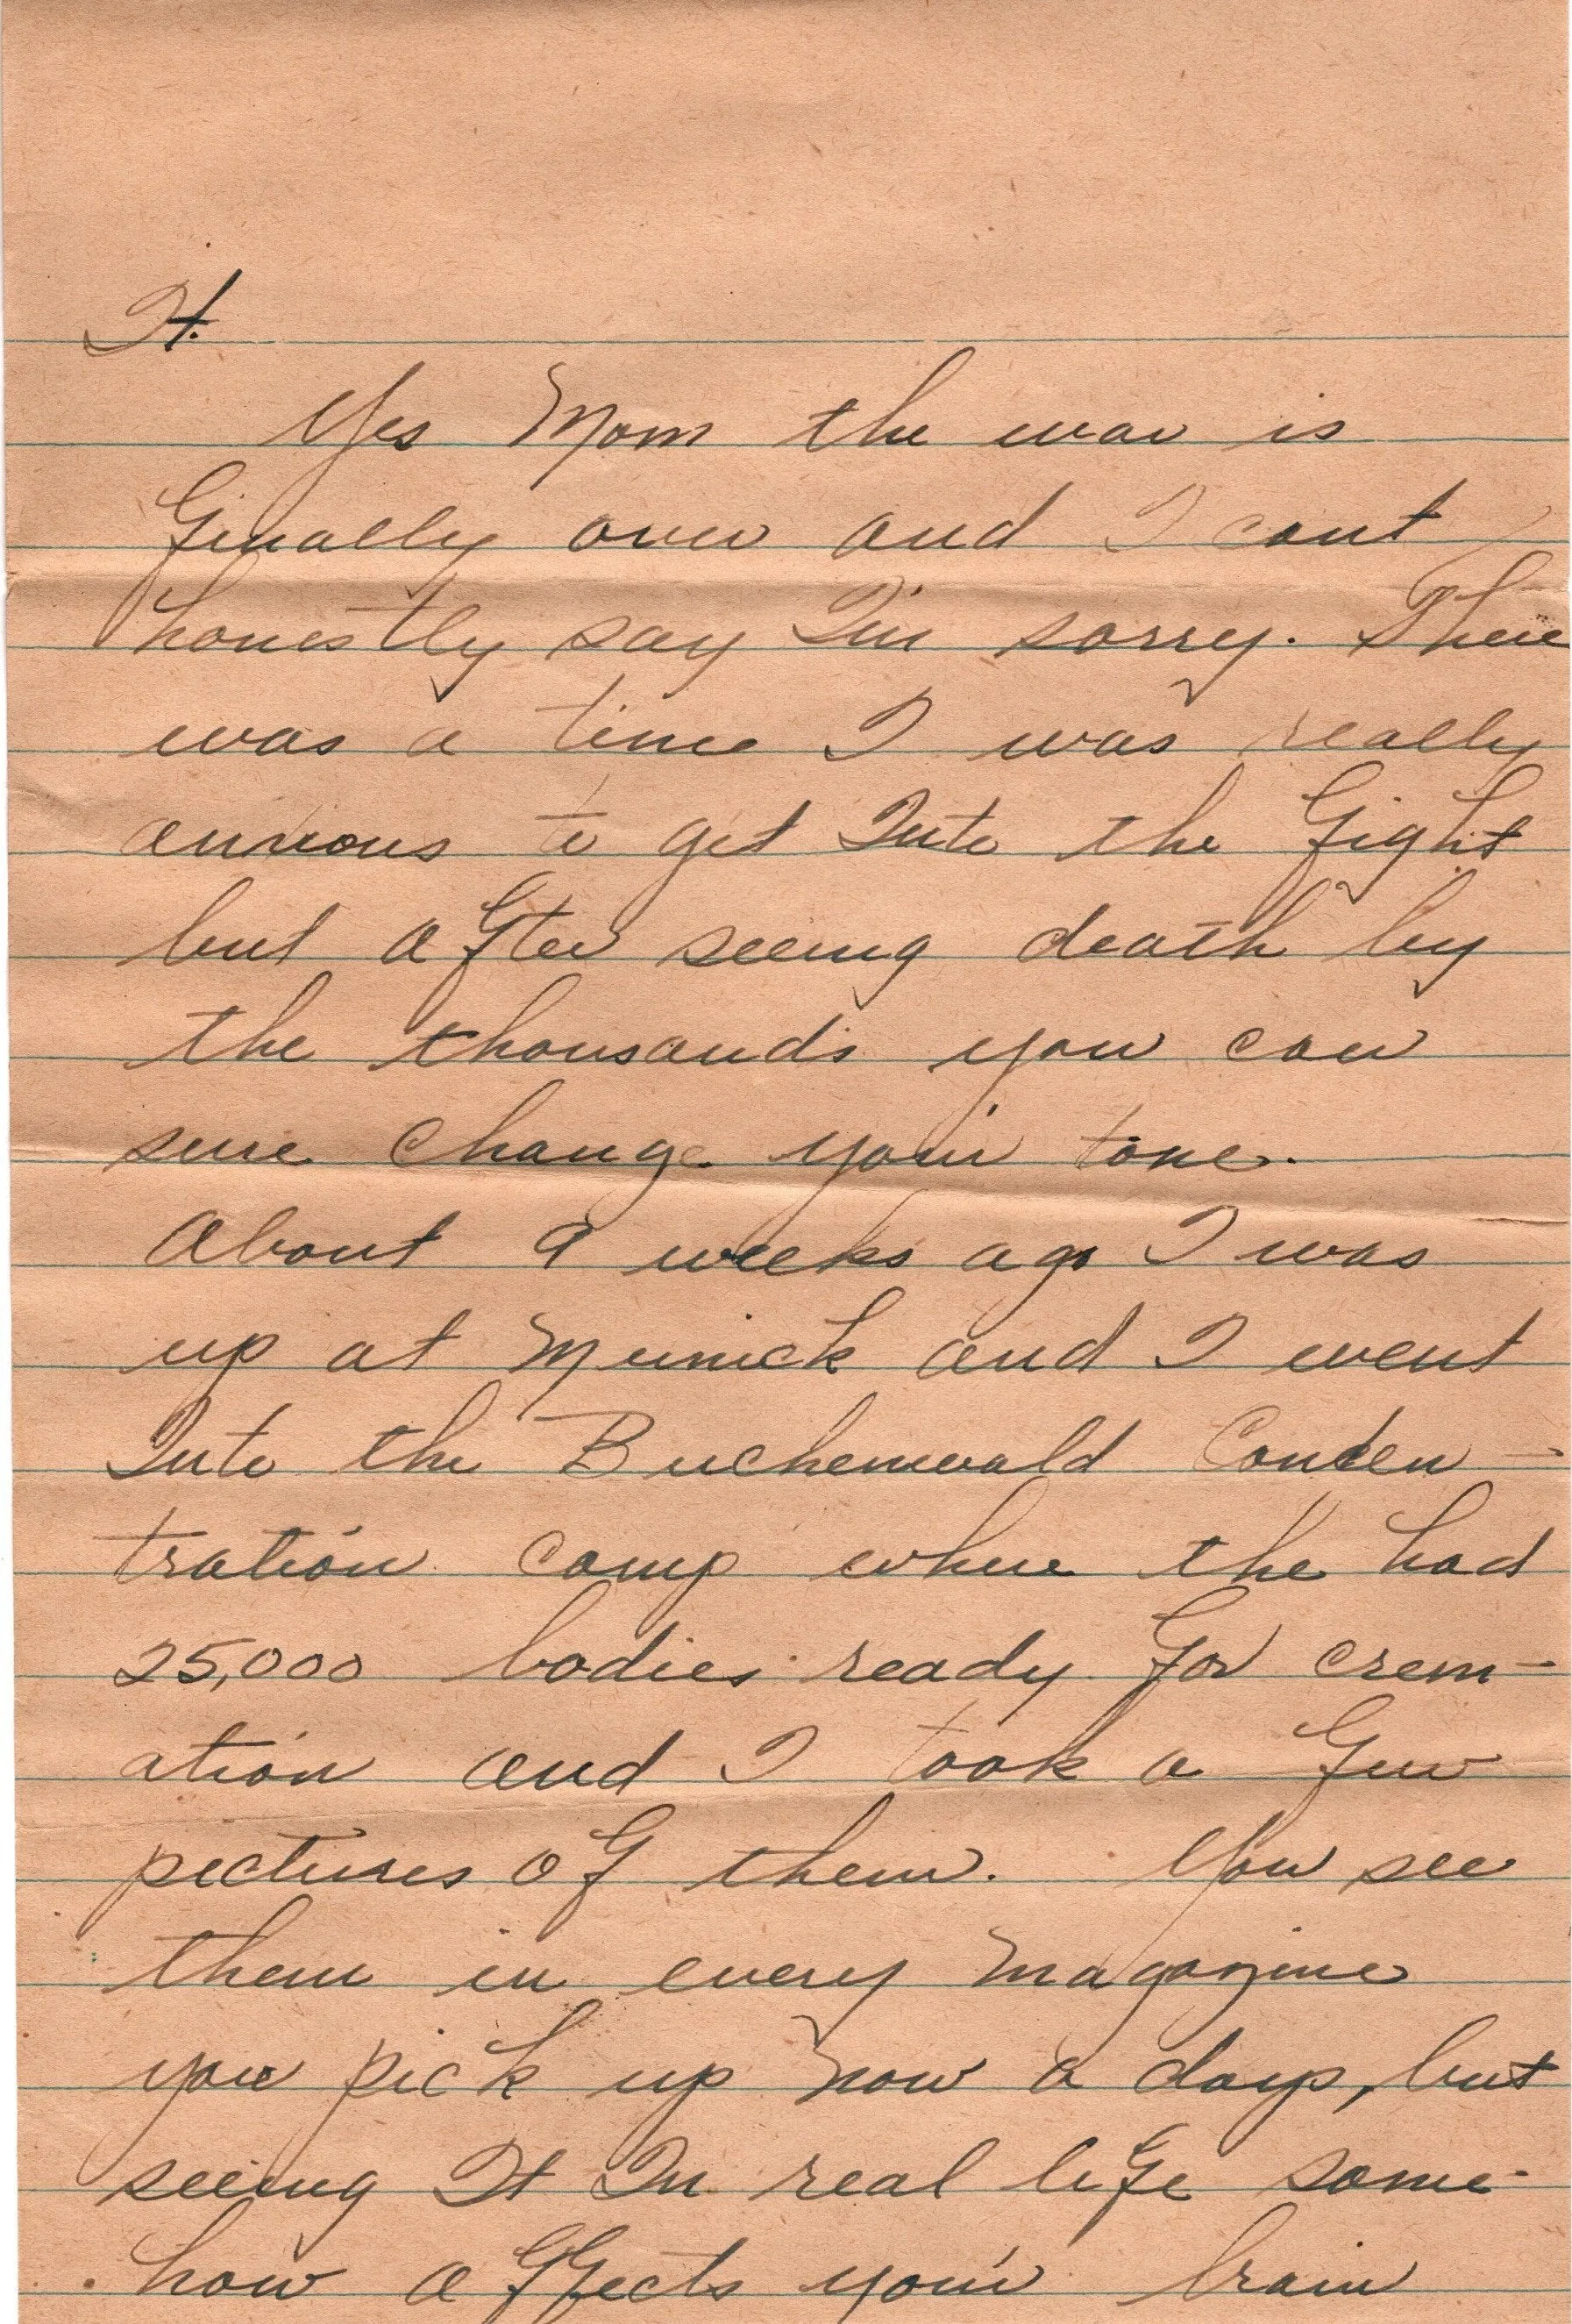 It.
Yes Mom the war is
finally over and I cant
honestly say I'm sorry. There
was a time I was really
anxious to get Into the fight
but after seeing death by
the thousands you can
sure change your tone.
About 9 weeks ago I was
up at Munick and I went
Into the Buchenwald Concen-
tration camp where the had
25,000 bodies ready for crem-
ation and I took a few
pictures of them. You see
them in every magazine
you pick up now a days, but
seeing It In real life some-
how affects your brain